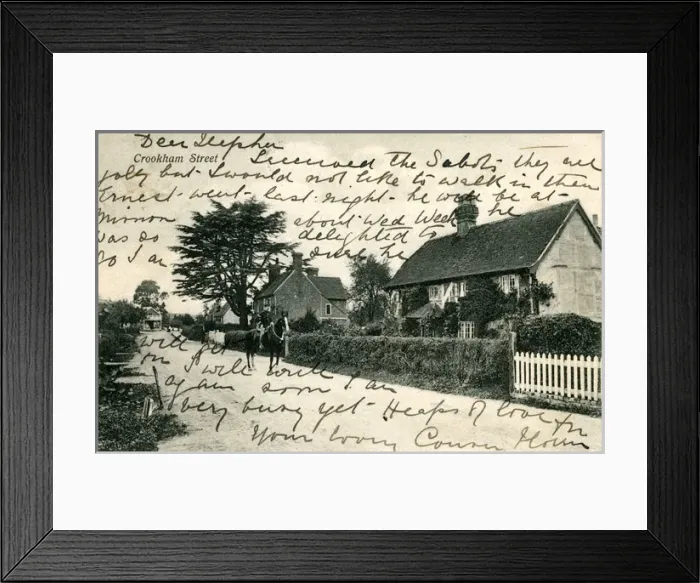 Dear
Crookham Street
I received the Sabots they are
jolly but I would not like to walk in them
Ernest went last night he will be at
about Wed Week he
was so delighted to
So I am
will get
on I will write
again soon I am
very busy yet - Heaps of love fr
Your loving Cousin